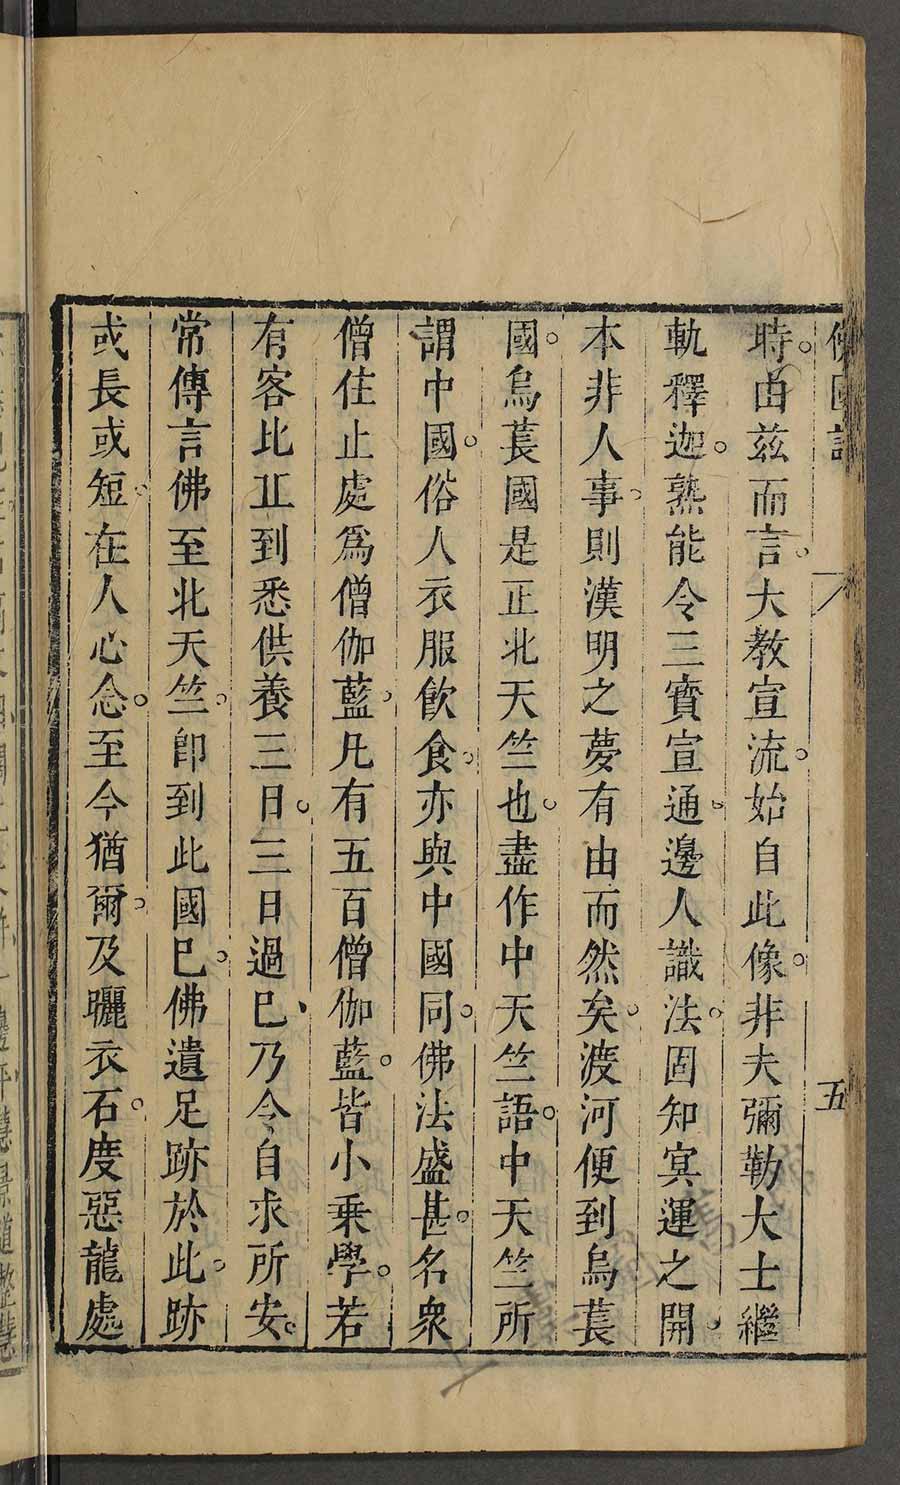 佛國記 五
時。由茲而言。大教宣流。始自此像。非夫彌勒大士繼
軌釋迦。熟能令三寶宣通。邊人識法。固知冥運之開。
本非人事。則漢明之夢有由而然矣。渡河便到烏萇
國。烏萇國是正北天竺也。盡作中天竺語。中天竺所
謂中國。俗人衣服飲食。亦與中國同。佛法盛甚。名衆
僧住止處爲僧伽藍。凡有五百僧伽藍。皆小乗學。若
有客比丘到悉供養三日。三日過已、乃令自求所安。
常傳言佛至北天竺。即到此國已。佛遺足跡於此。跡
或長或短。在人心念。至今猶爾。及曬衣石。度惡龍處